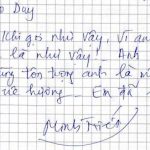 Duy
Khi gọi như vậy, vì an
là như vậy! Anh
tôn tượng anh là n
hướng... Em đã
Minh Triết